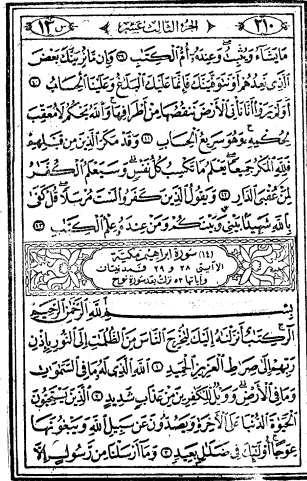 ٢١٠ الجزء الثالث عشر س ١٣
مَا يَشَآءُ وَيُثْبِتُ وَعِندَهُۥٓ أُمُّ ٱلْكِتَٰبِ ٣٩ وَإِن مَّا نُرِيَنَّكَ بَعْضَ
ٱلَّذِى نَعِدُهُمْ أَوْ نَتَوَفَّيَنَّكَ فَإِنَّمَا عَلَيْكَ ٱلْبَلَٰغُ وَعَلَيْنَا ٱلْحِسَابُ ٤٠
أَوَلَمْ يَرَوْا۟ أَنَّا نَأْتِى ٱلْأَرْضَ نَنقُصُهَا مِنْ أَطْرَافِهَا وَٱللَّهُ يَحْكُمُ لَا مُعَقِّبَ
لِحُكْمِهِۦ وَهُوَ سَرِيعُ ٱلْحِسَابِ ٤١ وَقَدْ مَكَرَ ٱلَّذِينَ مِن قَبْلِهِمْ
فَلِلَّهِ ٱلْمَكْرُ جَمِيعًا يَعْلَمُ مَا تَكْسِبُ كُلُّ نَفْسٍ وَسَيَعْلَمُ ٱلْكُفَّٰرُ
لِمَنْ عُقْبَى ٱلدَّارِ ٤٢ وَيَقُولُ ٱلَّذِينَ كَفَرُوا۟ لَسْتَ مُرْسَلًا قُلْ كَفَىٰ
بِٱللَّهِ شَهِيدًۢا بَيْنِى وَبَيْنَكُمْ وَمَنْ عِندَهُۥ عِلْمُ ٱلْكِتَٰبِ ٤٣
(١٤) سورة ابراهيم مكية
الا آيتى ٢٨ و ٢٩ فمدنيتان
وآياتها ٥٢ نزلت بعد سورة نوح
بِسْمِ ٱللَّهِ ٱلرَّحْمَٰنِ ٱلرَّحِيمِ
الٓر كِتَٰبٌ أَنزَلْنَٰهُ إِلَيْكَ لِتُخْرِجَ ٱلنَّاسَ مِنَ ٱلظُّلُمَٰتِ إِلَى ٱلنُّورِ بِإِذْنِ
رَبِّهِمْ إِلَىٰ صِرَٰطِ ٱلْعَزِيزِ ٱلْحَمِيدِ ١ ٱللَّهِ ٱلَّذِى لَهُۥ مَا فِى ٱلسَّمَٰوَٰتِ
وَمَا فِى ٱلْأَرْضِ وَوَيْلٌ لِّلْكَٰفِرِينَ مِنْ عَذَابٍ شَدِيدٍ ٢ ٱلَّذِينَ يَسْتَحِبُّونَ
ٱلْحَيَوٰةَ ٱلدُّنْيَا عَلَى ٱلْءَاخِرَةِ وَيَصُدُّونَ عَن سَبِيلِ ٱللَّهِ وَيَبْغُونَهَا
عِوَجًا أُو۟لَٰٓئِكَ فِى ضَلَٰلٍۭ بَعِيدٍ ٣ وَمَآ أَرْسَلْنَا مِن رَّسُولٍ إِلَّا